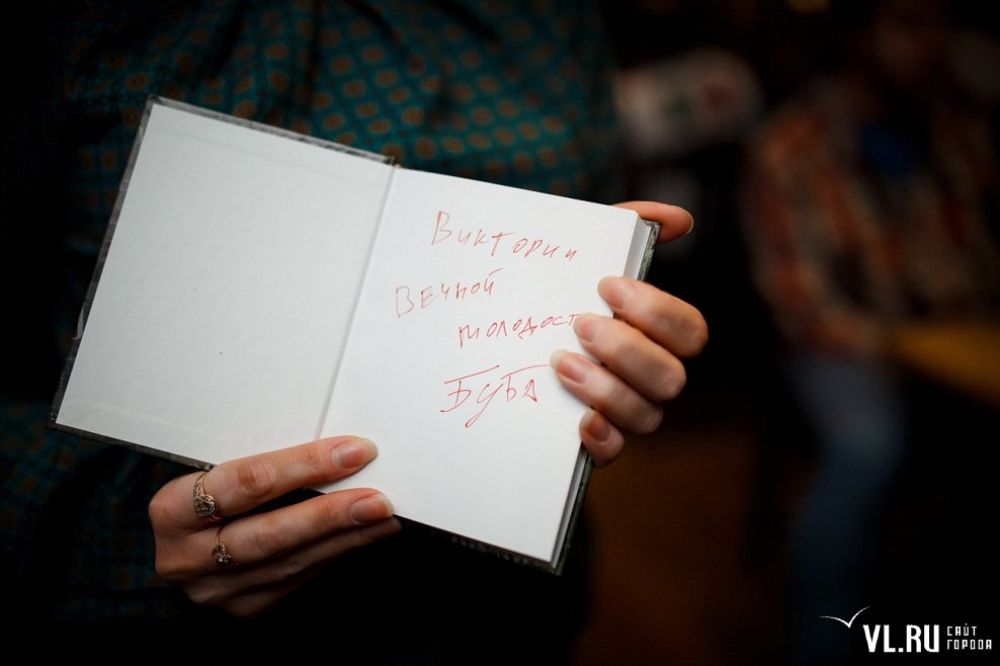 Виктории
Вечной
молодост
Буба
VL.RU САЙТ
ГОРОДА